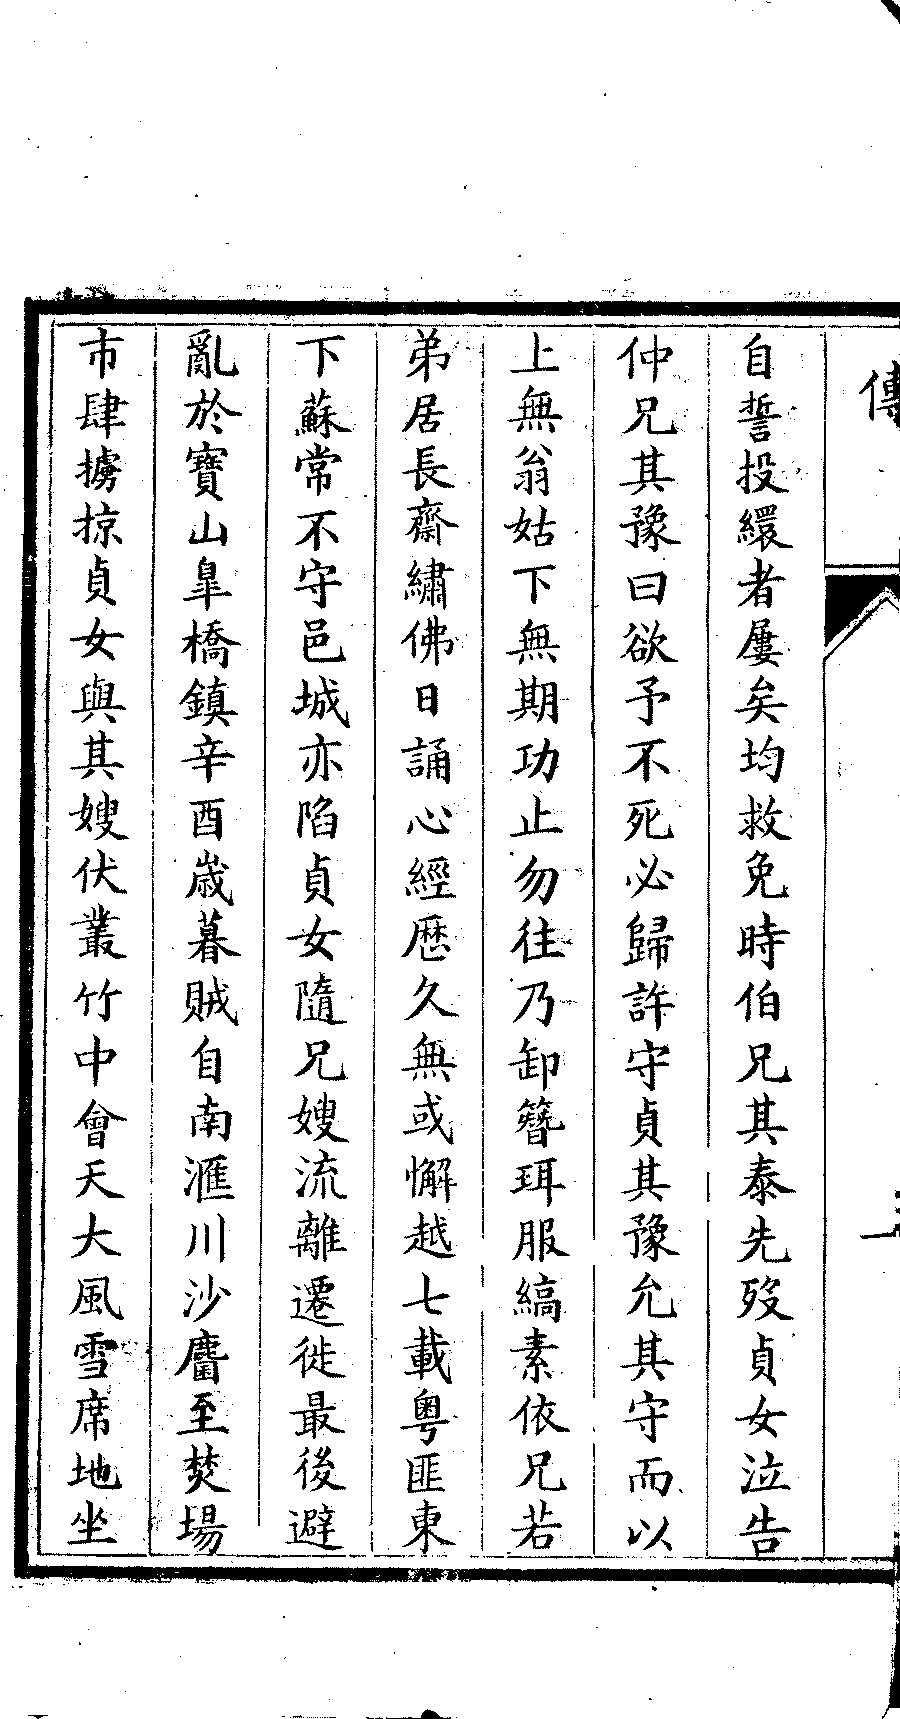 傳
自誓投繯者屢矣均救免時伯兄其泰先歿貞女泣告
仲兄其豫曰欲予不死必歸許守貞其豫允其守而以
上無翁姑下無期功止勿往乃卸簪珥服縞素依兄若
弟居長齋繡佛日誦心經歷久無或懈越七載粵匪東
下蘇常不守邑城亦陷貞女隨兄嫂流離遷徙最後避
亂於寶山皐橋鎮辛酉歲暮賊自南滙川沙麕至焚場
市肆擄掠貞女與其嫂伏叢竹中會天大風雪席地坐